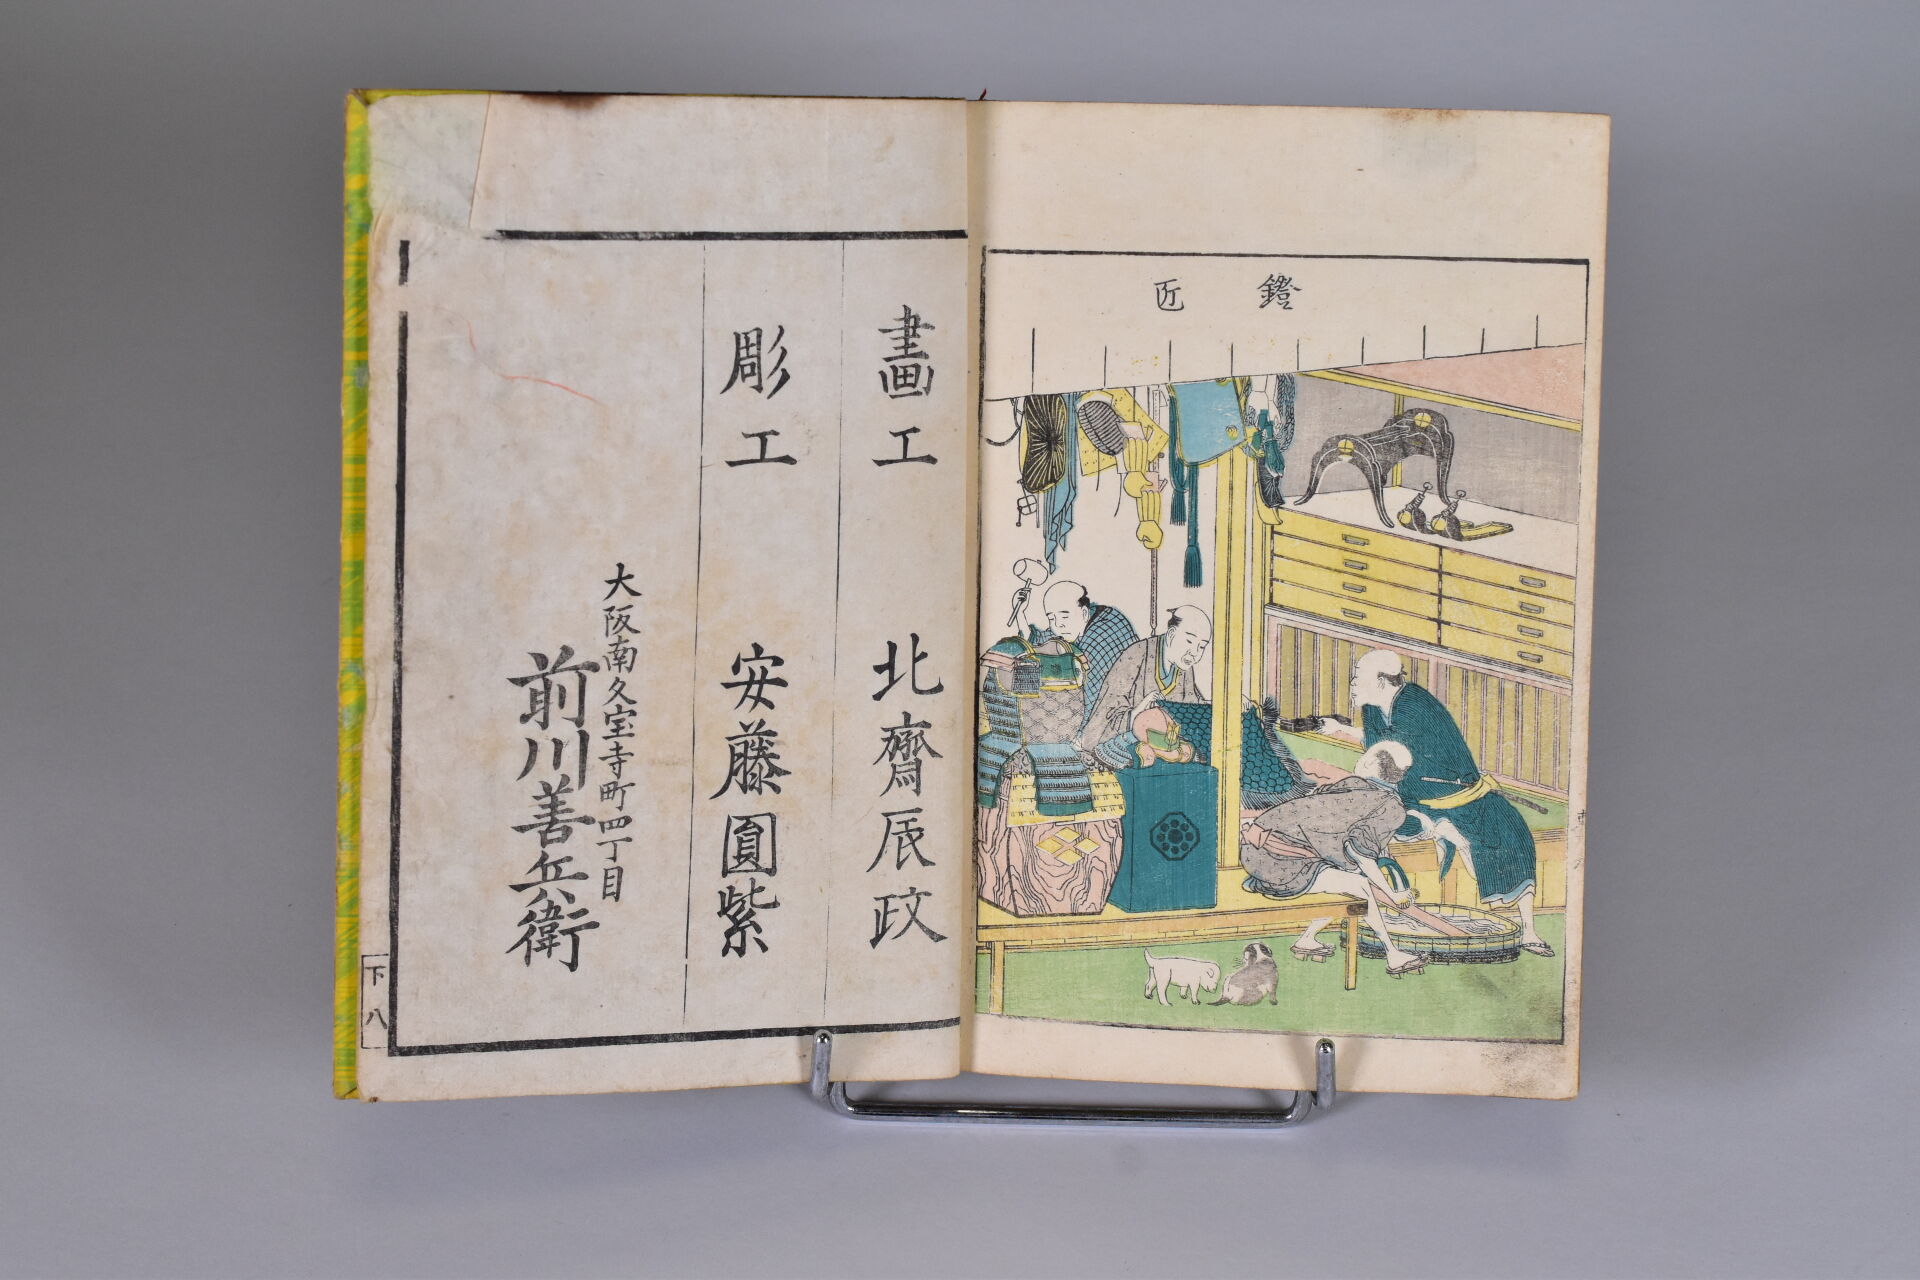 鐙匠
畫工 北齋辰政
彫工 安藤圓紫
大阪南久宝寺町四丁目
前川善兵衛
下 八